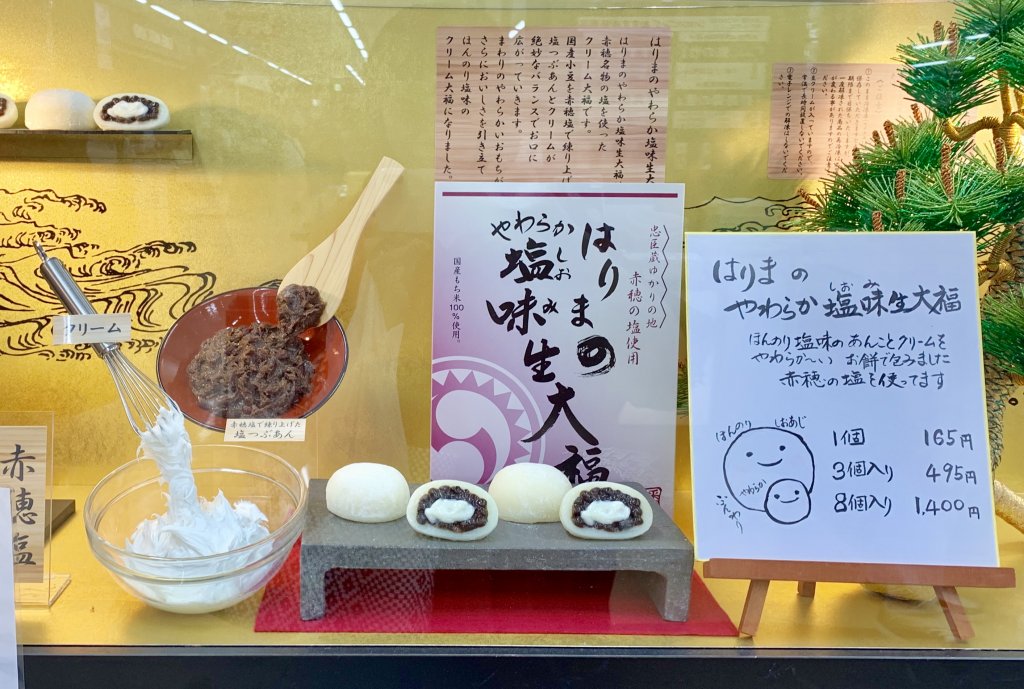 はりまのやわらか塩味生大
はりまのやわらか塩味生大福
赤穂名物の塩を使った
クリーム大福です。
国産小豆を赤穂塩で練り上げ
塩つぶあんとクリームが
絶妙なバランスでお口に
広がっていきます。
まわりのやわらかいおもちが
さらにおいしさを引き立て
ほんのり塩味の
クリーム大福になりました。
忠臣蔵ゆかりの地
赤穂の塩使用
はりまの
やわらか
塩味生大福
しお み
国産もち米
100%使用。
はりまの
しお み
やわらか塩味生大福
ほんのり塩味のあんことクリームを
やわらか〜い お餅で包みました
赤穂の塩を使ってます
ほんのり
しおあじ
やわらか
ふんわり
1個 165円
3個入り 495円
8個入り 1,400円
クリーム
赤穂塩で練り上げた
塩つぶあん
赤穂塩